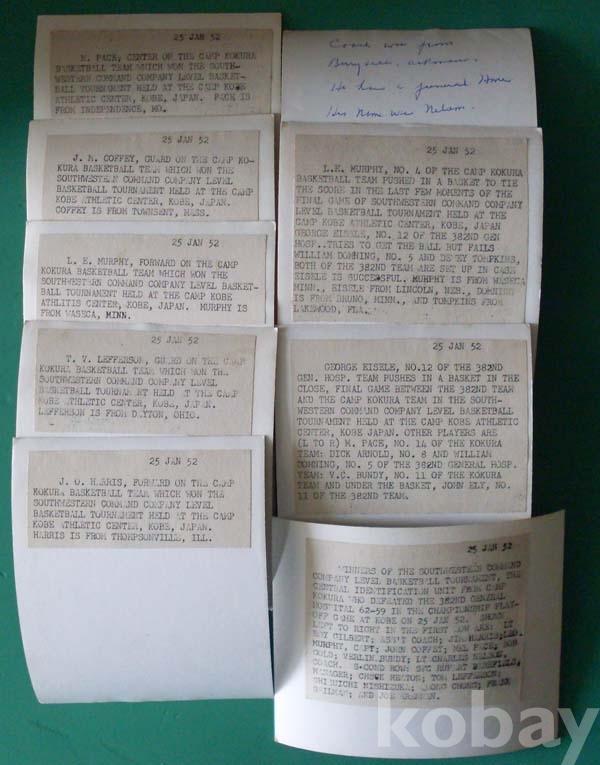 25 JAN 52
M. PACK, CENTER ON THE CAMP KOKURA
BASKETBALL TEAM WHICH WON THE SOUTH-
WESTERN COMMAND COMPANY LEVEL BASKET-
BALL TOURNAMENT HELD AT THE CAMP KOBE
ATHLETIC CENTER, KOBE, JAPAN. PACK IS
FROM INDEPENDENCE, MO.
25 JAN 52
J. M. COFFEY, GUARD ON THE CAMP KO-
KURA BASKETBALL TEAM WHICH WON THE
SOUTHWESTERN COMMAND COMPANY LEVEL
BASKETBALL TOURNAMENT HELD AT THE CAMP
KOBE ATHLETIC CENTER, KOBE, JAPAN.
COFFEY IS FROM TOWNSENT, MASS.
25 JAN 52
L. E. MURPHY, FORWARD ON THE CAMP
KOKURA BASKETBALL TEAM WHICH WON THE
SOUTHWESTERN COMMAND COMPANY LEVEL BASKET-
BALL TOURNAMENT HELD AT THE CAMP KOBE
ATHLITIC CENTER, KOBE, JAPAN. MURPHY IS
FROM WASECA, MINN.
25 JAN 52
T. V. LEFFERSON, GUARD ON THE CAMP
KOKURA BASKETBALL TEAM WHICH WON THE
SOUTHWESTERN COMMAND COMPANY LEVEL
BASKETBALL TOURNAMENT HELD AT THE CAMP
KOBE ATHLETIC CENTER, KOBE, JAPAN.
LEFFERSON IS FROM DAYTON, OHIO.
25 JAN 52
J. O. HARRIS, FORWARD ON THE CAMP
KOKURA BASKETBALL TEAM WHICH WON THE
SOUTHWESTERN COMMAND COMPANY LEVEL
BASKETBALL TOURNAMENT HELD AT THE CAMP
KOBE ATHLETIC CENTER, KOBE, JAPAN.
HARRIS IS FROM THOMPSONVILLE, ILL.
Coach was from
He has a funeral Home
His Name was Nelson.
25 JAN 52
L.E. MURPHY, NO. 4 OF THE CAMP KOKURA
BASKETBALL TEAM PUSHED IN A BASKET TO TIE
THE SCORE IN THE LAST FEW MOMENTS OF THE
FINAL GAME OF SOUTHWESTERN COMMAND COMPANY
LEVEL BASKETBALL TOURNAMENT HELD AT THE
CAMP KOBE ATHLETIC CENTER, KOBE, JAPAN
GEORGE EISELE, NO. 12 OF THE 382ND GEN
HOSP. TRIES TO GET THE BALL BUT FAILS
WILLIAM DOMNING, NO. 5 AND DEWEY TOMPKINS,
BOTH OF THE 382ND TEAM ARE SET UP IN CASE
EISELE IS SUCCESSFUL. MURPHY IS FROM WASECA
MINN., EISELE FROM LINCOLN, NEB., DOMNING
IS FROM BRUNO, MINN., AND TOMPKINS FROM
LAKEWOOD, FLA.
25 JAN 52
GEORGE EISELE, NO.12 OF THE 382ND
GEN. HOSP. TEAM PUSHES IN A BASKET IN THE
CLOSE, FINAL GAME BETWEEN THE 382ND TEAM
AND THE CAMP KOKURA TEAM IN THE SOUTH-
WESTERN COMMAND COMPANY LEVEL BASKETBALL
TOURNAMENT HELD AT THE CAMP KOBE ATHLETIC
CENTER, KOBE JAPAN. OTHER PLAYERS ARE
(L TO R) M. PACE, NO. 14 OF THE KOKURA
TEAM: DICK ARNOLD, NO. 8 AND WILLIAM
DOMNING, NO. 5 OF THE 382ND GENERAL HOSP.
TEAM: V.C. BUNDY, NO. 11 OF THE KOKURA
TEAM AND UNDER THE BASKET, JOHN ELY, NO.
11 OF THE 382ND TEAM.
25 JAN 52
WINNERS OF THE SOUTHWESTERN COMMAND
COMPANY LEVEL BASKETBALL TOURNAMENT, THE
CENTRAL IDENTIFICATION UNIT FROM CAMP
KOKURA WHO DEFEATED THE 382ND GENERAL
HOSPITAL 62-59 IN THE CHAMPIONSHIP PLAY-
OFF GAME AT KOBE ON 25 JAN 52. SHOWN
LEFT TO RIGHT IN THE FIRST ROW ARE: LT
ROY GILBERT; ASS'T COACH; JIM HARRIS; LEO
MURPHY, CAPT; JOHN COFFEY; MEL PACE; BOB
GOLD; VERLIN BUNDY; LT CHARLES NELSON,
COACH. SECOND ROW: SFC RUPERT
MANAGER; CHUCK HEATON; TOM LEFFERSON;
SHINUICHI NISHIZUKA; CHUNG; FRANK
AND JOE
kobay